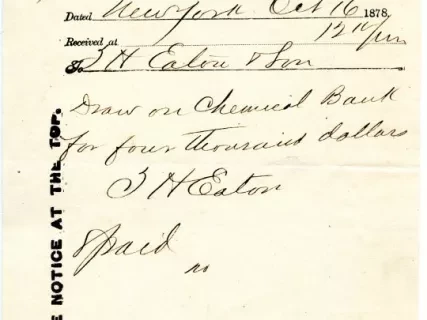 Dated New York Oct 16 1878.
Received at 12
To T H Eaton & Son
Draw on Chemical Bank
for four thousand dollars
T H Eaton
8 paid
E NOTICE AT THE TOP.